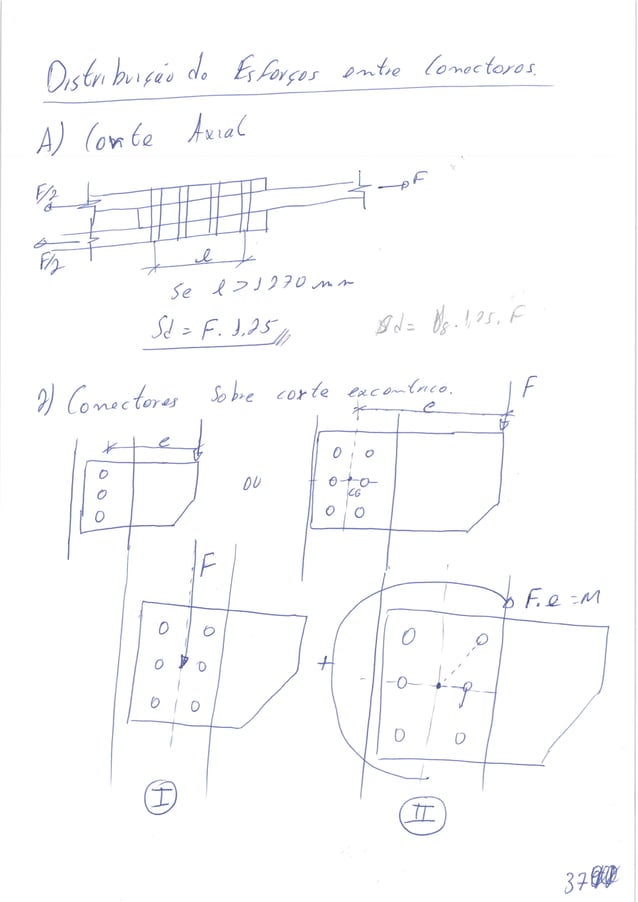 Distribuição do Esforços entre Conectores.
A) Corte Axial
F/2
F
F/2
l
Se l > 1270 mm
Sd = F. 1,25
d = . 1,25. F
2) Conectores Sobre corte excentrico.
F
e
e
ou
CG
F
F.e = M
+
I
II
37